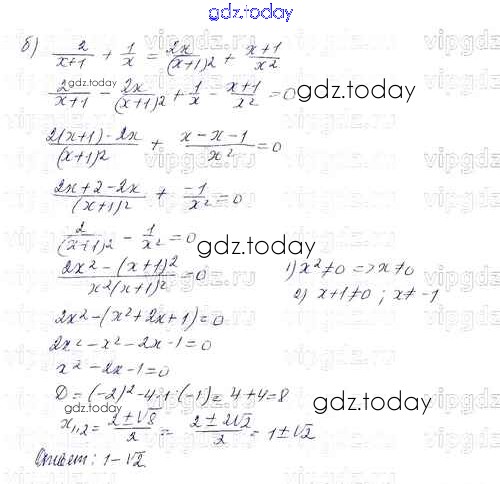 gdz.today
б) 2/(x+1) + 1/x = 2x/(x+1)2 + (x+1)/x2
gdz.today
2/(x+1) - 2x/(x+1)2 + 1/x - (x+1)/x2 = 0
gdz.today
(2(x+1)-2x)/(x+1)2 + (x-x-1)/x2 = 0
(2x+2-2x)/(x+1)2 + -1/x2 = 0
2/(x+1)2 - 1/x2 = 0
gdz.today
(2x2-(x+1)2)/(x2(x+1)2) = 0
1) x2≠0 => x≠0
2) x+1≠0; x≠-1
2x2-(x2+2x+1)=0
2x2-x2-2x-1=0
x2-2x-1=0
gdz.today
D=(-2)2-4·1·(-1)=4+4=8
x1,2=(2±√8)/2 = (2±2√2)/2 = 1±√2
Ответ: 1-√2
gdz.today
vipgdz.ru